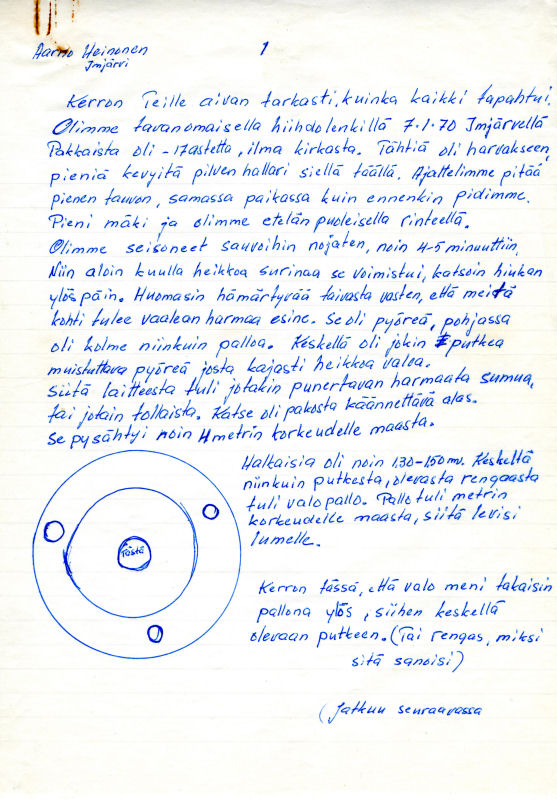 Aarno Heinonen
Imjärvi
1
Kerron Teille aivan tarkasti, kuinka kaikki tapahtui.
Olimme tavanomaisella hiihdolenkillä 7.1.70 Imjärvellä
Pakkaista oli -17astetta, ilma kirkasta. Tähtiä oli harvakseen,
pieniä kevyitä pilven hallari siellä täällä. Ajattelimme pitää
pienen tauvon, samassa paikassa kuin ennenkin pidimme.
Pieni mäki ja olimme etelän puoleisella rinteellä.
Olimme seisoneet sauvoihin nojaten, noin 4-5 minuuttiin,
Niin aloin kuulla heikkoa surinaa se voimistui, katsoin hiukan
ylös päin. Huomasin hämärtyvää taivasta vasten, että meitä
kohti tulee vaalean harmaa esine. Se oli pyöreä, pohjassa
oli kolme niinkuin palloa. Keskellä oli jokin putkea
muistuttava pyöreä josta kajasti heikkoa valoa.
Siitä laitteesta tuli jotakin punertavan harmaata sumua,
tai jotain tollaista. Katse oli pakosta käännettävä alas.
Se pysähtyi noin 4metrin korkeudelle maasta.
Halkaisia oli noin 130-150 mv. Keskeltä
niinkuin putkesta, olevasta rengaasta
tuli valopallo. Pallo tuli metrin
korkeudelle maasta, siitä levisi
lumelle.
Tästä
Kerron tässä, että valo meni takaisin
pallona ylös, siihen keskellä
olevaan putkeen. (Tai rengas, miksi
sitä sanoisi)
(Jatkuu seuraavassa